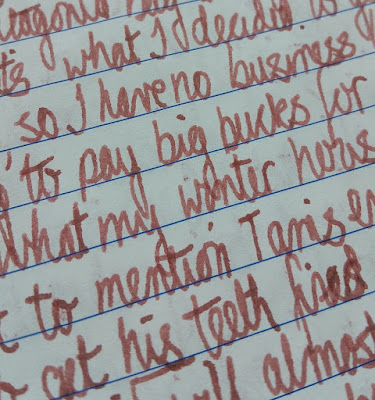 what I'd decided is
so I have no business
to pay big bucks for
what my winter
to mention Tamsen
get his teeth fixed
almost